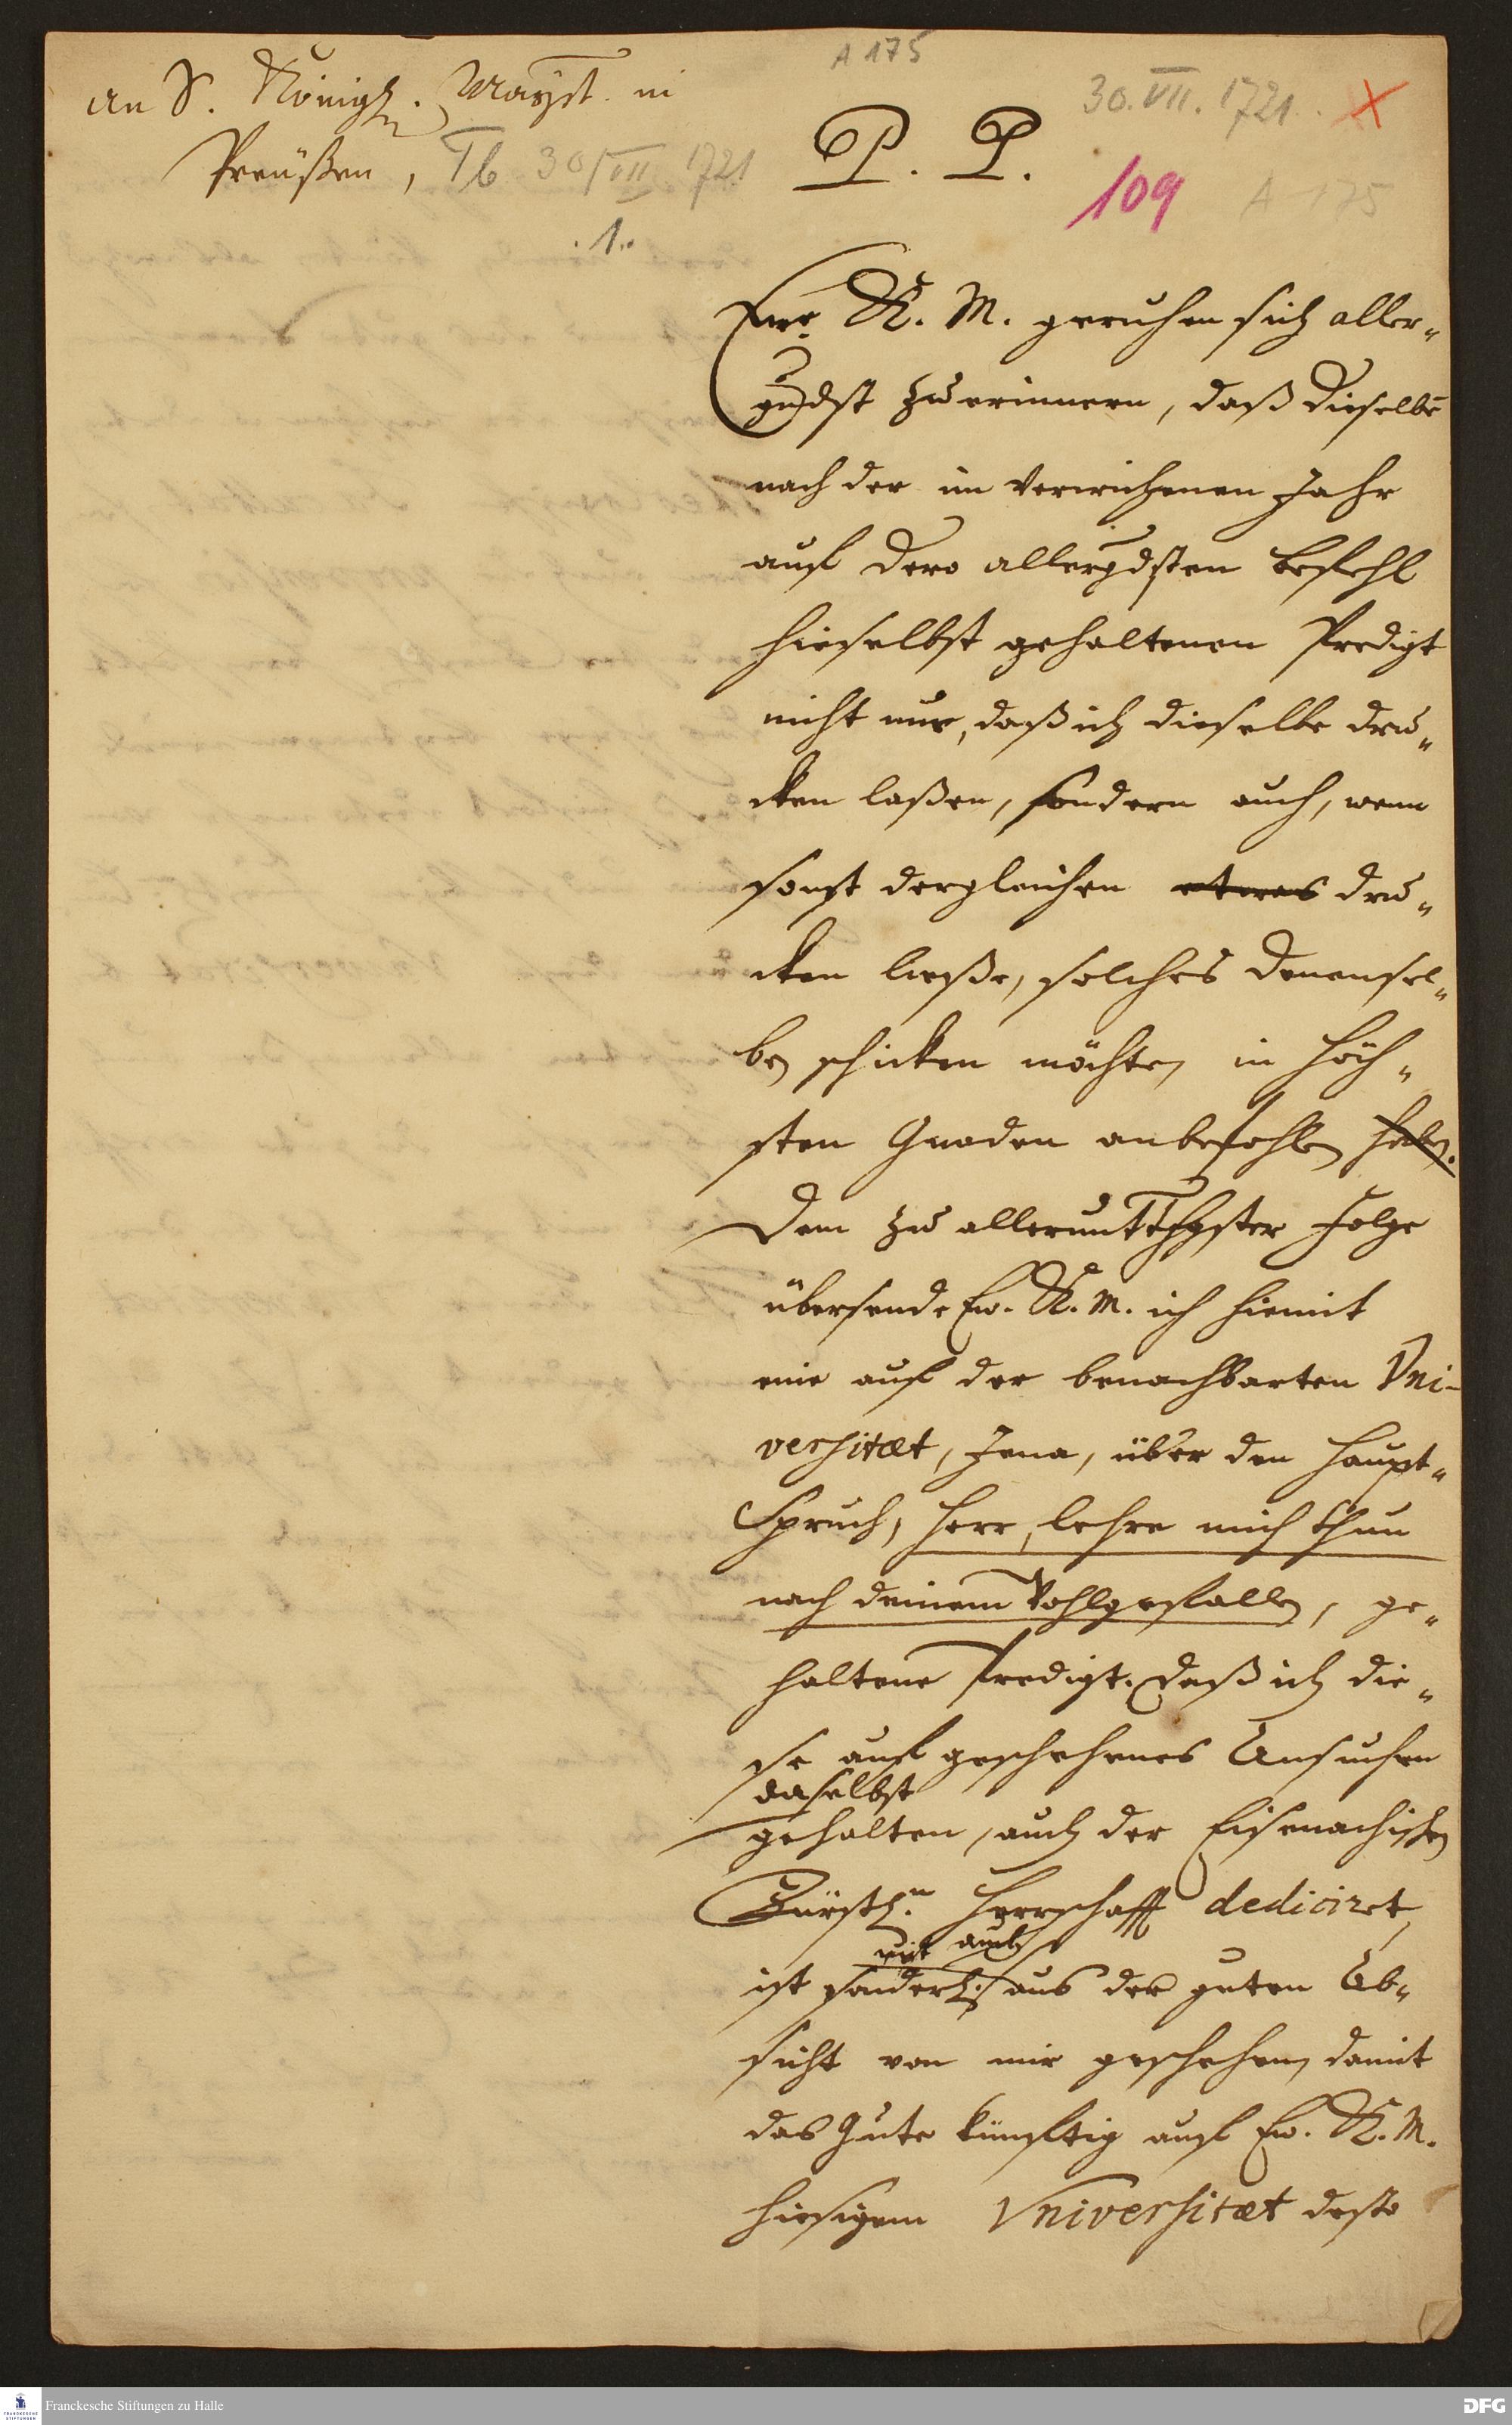 A 175
an S. Königl. Mayst. in
Preüßen, Tb 30/VII 1721
30. VII. 1721. X
P. P.
109 A 175
.1..
Ewr. K. M. geruhen sich aller„
gndst zu erinnern, daß dieselbe
nach der im verwichenen Jahr
auf Dero allergdsten Befehl
hieselbst gehaltenen Predigt
nicht nur, daß ich dieselbe dru„
cken laßen, sondern auch, wenn
sonst dergleichen etwas dru„
cken ließe, solches denensel„
ben schicken möchte, in höch„
sten Gnaden anbefohlen haben.
Dem zu alleruntthgster Folge
übersende Ew. K. M. ich hiemit
eine auf der benachbarten Vni-
versitæt, Jena, über den Haupt„
Spruch, Herr, lehre mich thun
nach deinem Wohlgefallen, ge„
haltene Predigt. Daß ich die„
se auf geschehenes Ansuchen
daselbst
gehalten, auch der Eisenachischen
Fürstl.n Herrschafft dediciret,
mit auch
ist sonderl. aus der guten Ab„
sicht von mir geschehen, damit
das Gute künftig auf Ew. K. M.
hiesigem Vniversitæt desto
Franckesche Stiftungen zu Halle
FRANCKESCHE
STIFTUNGEN
DFG